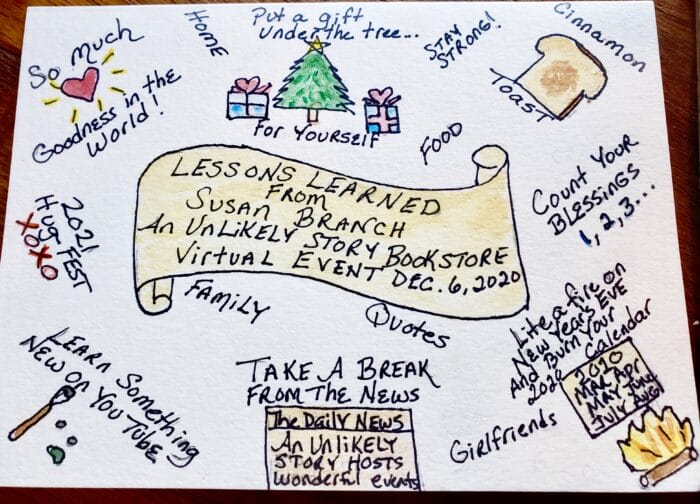 So Much
Goodness in the
World!
HOME
Put a gift
under the tree...
For Yourself
STAY
STRONG!
Cinnamon
TOAST
FOOD
LESSONS LEARNED
From
SUSAN BRANCH
An UNLIKELY STORY BOOKSTORE
VIRTUAL EVENT DEC. 6, 2020
Count Your
BLESSINGS
1, 2, 3...
2021
HUG FEST
XOXO
FAMILY
Quotes
Lite a fire on
New Years Eve
And Burn Your
2020 Calendar
2020
MAR APR
MAY June
JULY AUG
LEARN Something
NEW ON YOU TUBE
TAKE A BREAK
FROM THE NEWS
The DAILY NEWS
An UNLIKELY
STORY HOSTS
wonderful events
Girlfriends